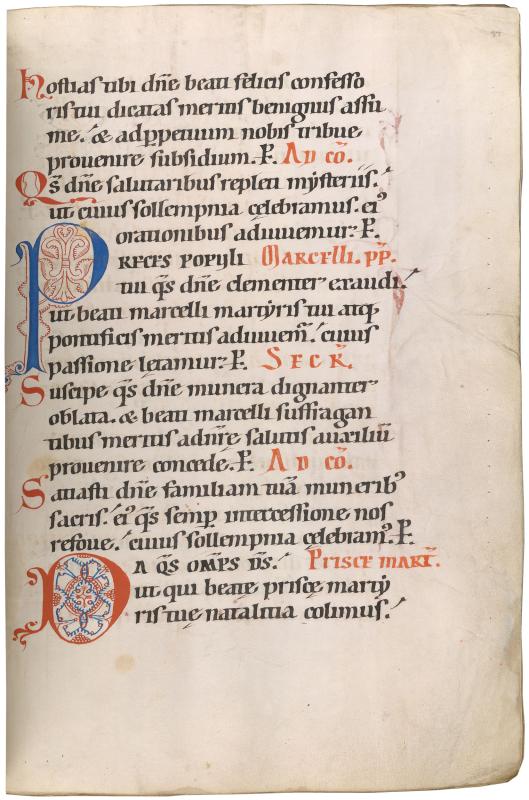 Hostias tibi dñe beati felicis confesso
ris tui dicatas meritis benignus assu
me. & ad ꝑpetuum nobis tribue
provenire subsidium. P. AD CŌ.
Qs̄ dñe salutaribus repleti mysteriis.
ut cuius sollempnia celebramus. ei⁹
orationibus adiuvemur. P.
PRECES POPULI MARCELLI. PP.
tui qs̄ dñe clementer exaudi.
ut beati marcelli martyris tui atq;
pontificis meritis adiuvem̄. cuius
passione letamur. P. SECR̄.
Suscipe qs̄ dñe munera dignanter
oblata. & beati marcelli suffragan
tibus meritis ad nr̄e salutis auxiliū
provenire concede. P. AD CŌ.
Satiasti dñe familiam tuā munerib⁹
sacris. ei⁹ qs̄ semꝑ intercessione nos
refove. cuius sollempnia celebram⁹. P.
DA QS̄ OMPS D̄S. PRISCE MART̄.
ut qui beatę priscę martẏ
ris tuę natalitia colimus.